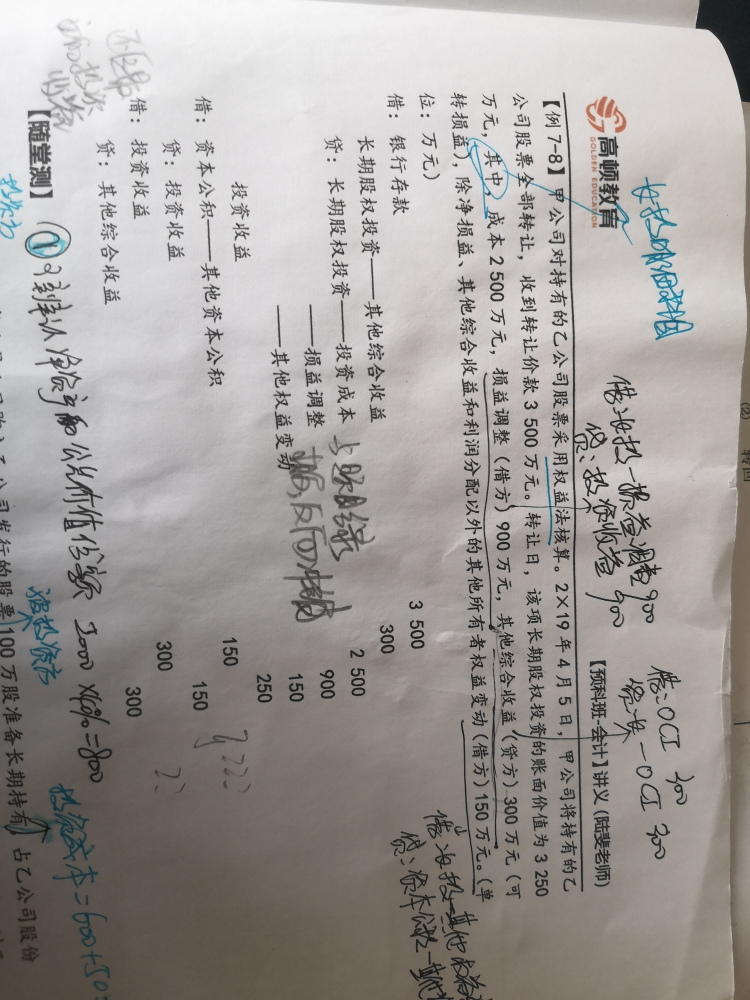 高顿教育
GOLDEN EDUCATION
【预科班-会计】讲义(陆斐老师)
借:长投—损益调整 900
贷:投资收益 900
借:OCI 300
贷:长投—OCI 300
【例 7-8】甲公司对持有的乙公司股票采用权益法核算。2×19 年 4 月 5 日,甲公司将持有的乙
公司股票全部转让,收到转让价款 3 500 万元。转让日,该项长期股权投资的账面价值为 3 250
万元,其中,成本 2 500 万元,损益调整(借方)900 万元,其他综合收益(贷方)300 万元(可
转损益),除净损益、其他综合收益和利润分配以外的其他所有者权益变动(借方)150 万元。(单
位:万元)
借:银行存款 3 500
长期股权投资——其他综合收益 300
贷:长期股权投资——投资成本 2 500
——损益调整 900
——其他权益变动 150
投资收益 250
借:资本公积——其他资本公积 150
贷:投资收益 150
借:投资收益 300
贷:其他综合收益 300
【随堂测】
2000 × 40% = 800
投资成本=600+50
100 万股准备长期持有,占乙公司股份